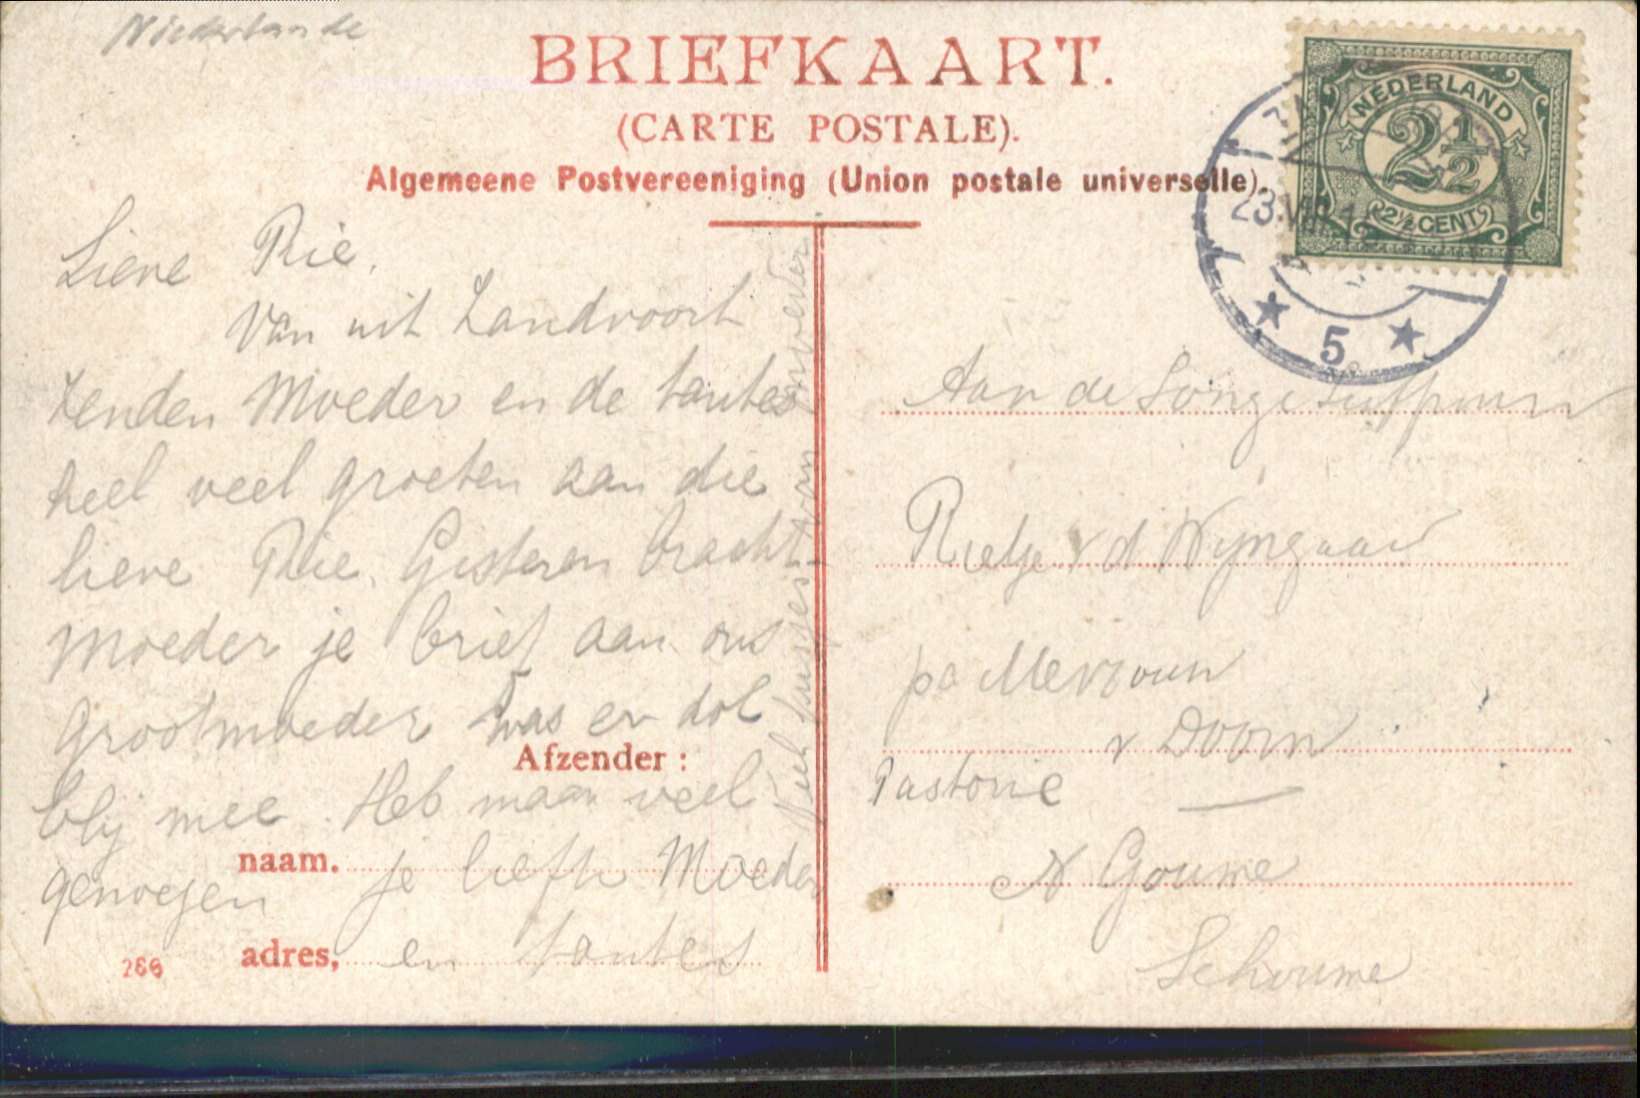 Niederlande
BRIEFKAART.
(CARTE POSTALE).
Algemeene Postvereeniging (Union postale universelle).
NEDERLAND
2½
2½ CENT
23.VII
5
Lieve Rie.
Van uit Zandvoort
zenden Moeder en de tantes
heel veel groeten aan die
lieve Rie. Gisteren bracht
moeder je brief aan ons
grootmoeder was er dol
blij mee. Heb maar veel
genoegen je liefh Moeder
en tantes
Veel van
Afzender:
naam.
adres,
266
Aan de Jonge
Rietje v d Wijngaar
pa Mevrouw
v Doorn
Pastorie
N